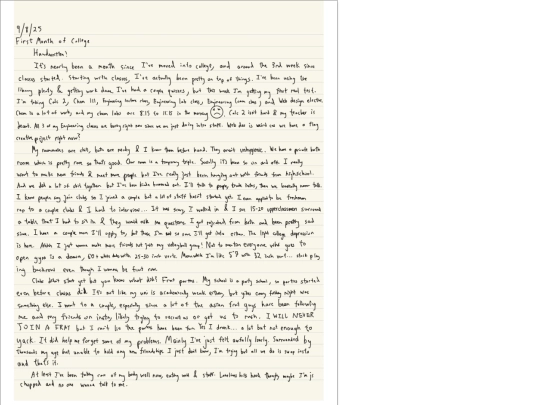 9/8/25
First Month of College
Handwritten!
It's nearly been a month since I've moved into college, and around the 3rd week since
classes started. Starting with classes, I've actually been pretty on top of things. I've been using the
library plenty & getting work done. I've had a couple quizzes, but this week I'm getting my first real test.
I'm taking Calc 2, Chem 111, Engineering lab class, Engineering and Web design elective.
Chem is a lot of work, and my chem labs are 8:15 to 11:15 in the morning Calc 2 isn't hard & my teacher is
All of my Engineering classes are so we just do
creative project right now?
My roommates are chill, both are & I knew them before hand. They aren't We have a private bath
room which is pretty nice so that's good. Our room is a Socially it's been so I really
want to make new friends & meet more people but I've really just been hanging out with friends from highschool.
And we did a lot of stuff together but I've been kinda I'll talk to people then we never talk.
I know people say join clubs so I joined a couple but a lot of stuff hasn't started yet. I even applied to be freshman
rep to a couple clubs & I had to interview... It was scary, I walked in & I see 15-20 upperclassmen surround
a table that I had to sit in & they would ask me questions. I got rejected from both and been pretty sad
since. I have a couple more I'll apply to, but I'm not so sure I'll get into either. The college depression
is here. I just wanna make more friends not just my volleyball guys! Not to mention everyone who goes to
open gym is a demon, with 25-30 inch verts. Meanwhile I'm like 5'9 with 32 inch vert... stuck play
ing backrow even though I wanna be front row.
Clubs didn't start yet but you know what did? Frat parties. My school is a party school, so parties started
even before classes did. It's not like my uni is academically weak either, but vibes every friday night was
something else. I went to a couple, especially since a lot of the asian frat guys have been following
me and my friends on insta, likely trying to recruit us or get us to rush. I WILL NEVER
JOIN A FRAT but I can't lie the parties have been fun. Yes I drink... a lot but not enough to
yack. It did help me forget some of my problems. Mainly I've just felt awfully lonely. Surrounded by
thousands my age but unable to hold any new friendships. I just don't know, I'm trying but all we do is swap insta
and that's it.
At least I've been taking care of my body well now, eating well & stuff. Loneliness hits hard though, maybe I'm just
chopped and no one wanna talk to me.